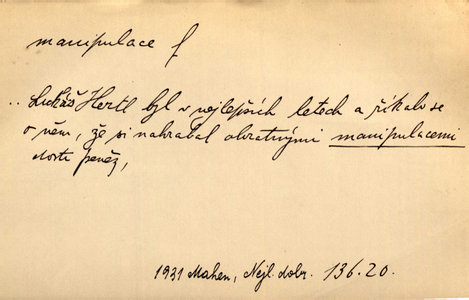 manipulace f
.. Lukáš Hertl byl v nejlepších letech a říkalo se
o něm, že si nahrabal obratnými manipulacemi
dosti peněz,
1931 Mahen, Nejl. dobr. 136.20.